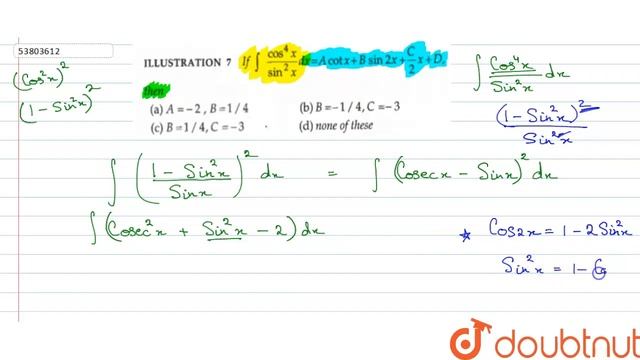 53803612
ILLUSTRATION 7 If ∫ cos⁴x / sin²x dx = A cot x + B sin 2x + C/2 x + D,
then
(a) A = −2, B = 1/4 (b) B = −1/4, C = −3
(c) B = 1/4, C = −3 (d) none of these
(Cos²x)²
(1 − Sin²x)²
∫ Cos⁴x / Sin²x dx
(1 − Sin²x)² / Sin²x
∫ (1 − Sin²x / Sinx)² dx = ∫ (Cosecx − Sinx)² dx
∫ (Cosec²x + Sin²x − 2) dx
☆ Cos2x = 1 − 2Sin²x
Sin²x = 1 − Co
doubtnut